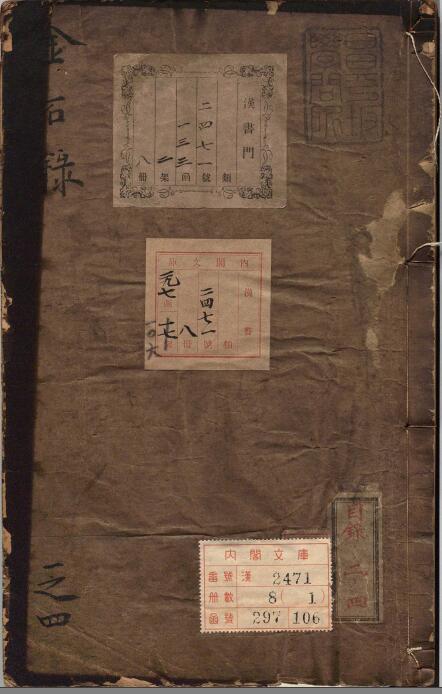 昌平坂
學問所
金石錄
漢書門
類
二四七一號
一三三函
二架
八冊
內閣文庫
漢書
二四七一
八
目錄
之四
內閣文庫
番號 漢 2471
冊數 8(1)
函號 297 106